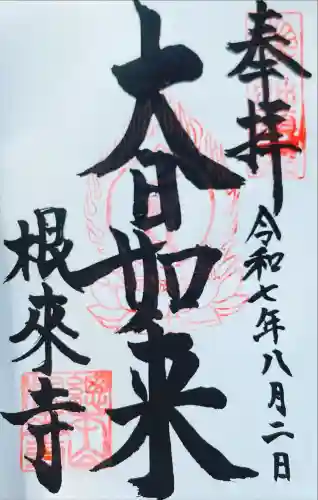 奉拝
令和七年八月二日
大日如来
根來寺